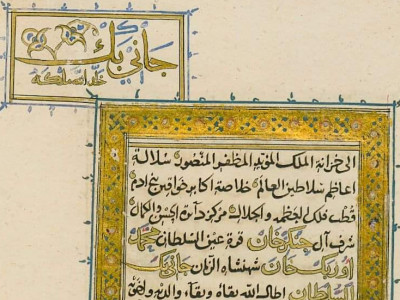 جاني بك
خلد الله ملكه
الى خزانة الملك المؤيد المظفر المنصور سلالة
اعاظم سلاطين العالم خلاصة اكابر خواقين بني ادم
قطب فلك العظمه والجلاله مركز دائرة الحسن والكمال
شرف آل جنكز خان قرة عين السلطان محمد
اوزبك خان شهنشاه الزمان جاني بك
السلطان اطال الله بقاه وبقاء والديه